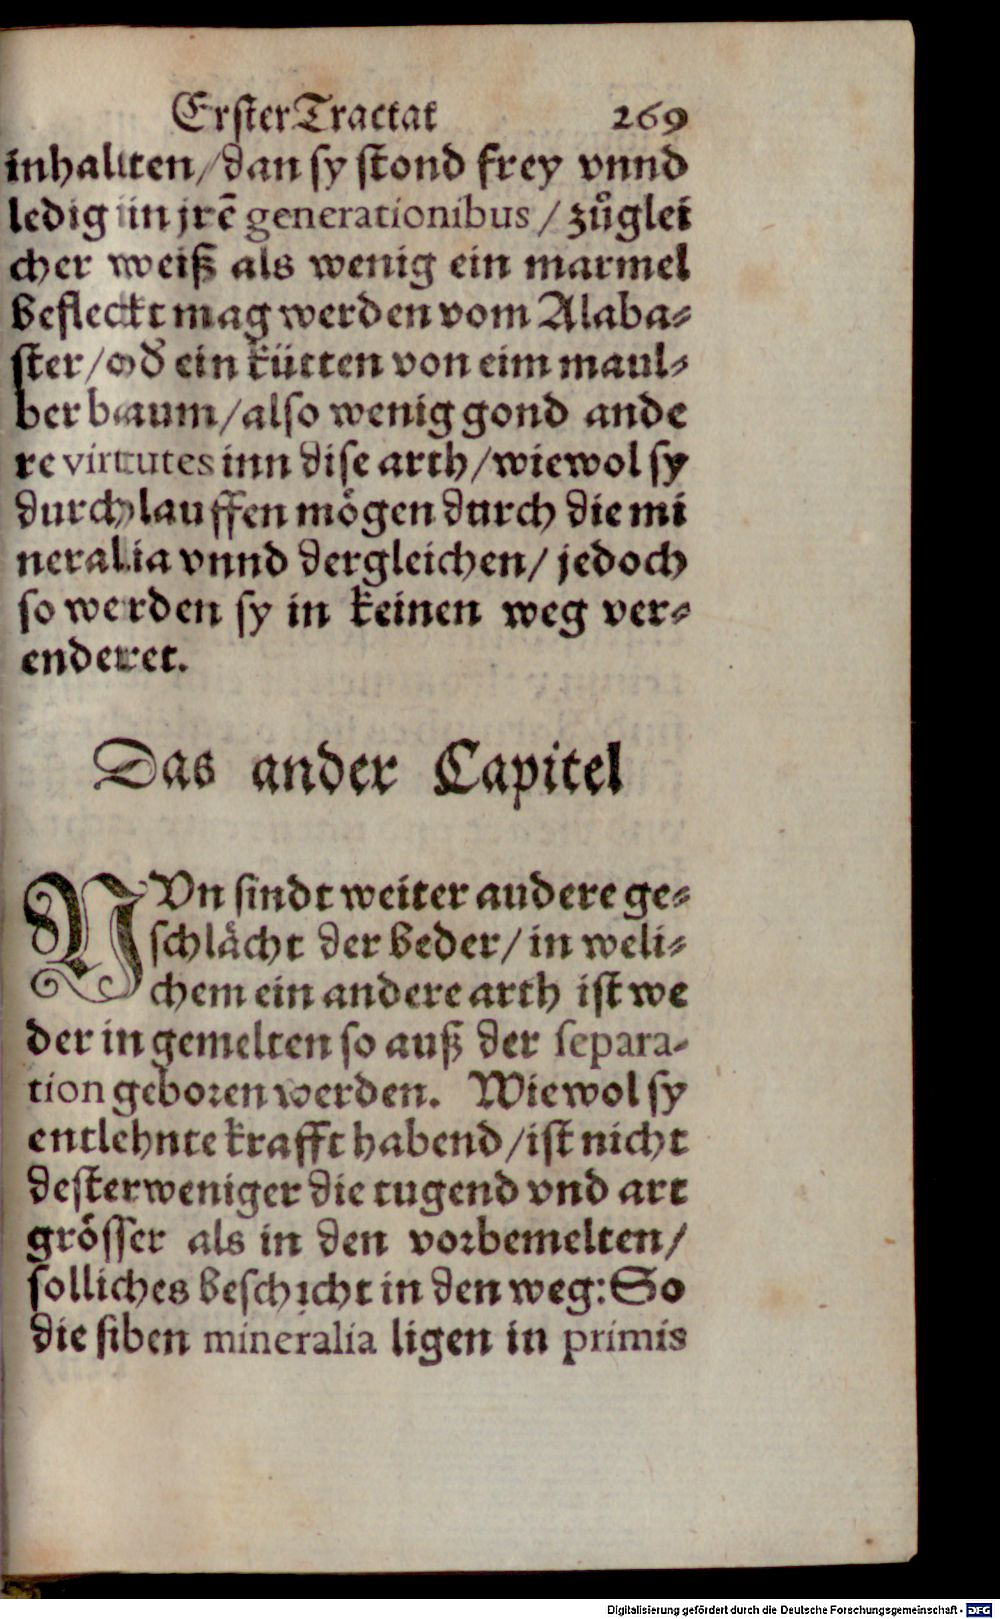 Erster Tractat 269
inhallten/dan sy stond frey vnnd
ledig in jrē generationibus/zůglei
cher weiß als wenig ein marmel
befleckt mag werden vom Alaba-
ster/od ein kütten von eim maul-
berbaum/also wenig gond ande
re virtutes inn dise arth/wiewol sy
durchlauffen mögen durch die mi
neralia vnnd dergleichen/jedoch
so werden sy in keinen weg ver-
enderet.
Das ander Capitel
NVn sindt weiter audere ge-
schlächt der beder/in weli-
chem ein andere arth ist we
der in gemelten so auß der separa-
tion geboren werden. Wiewol sy
entlehnte krafft habend/ist nicht
desterweniger die tugend vnd art
grösser als in den vorbemelten/
solliches beschicht in den weg: So
die siben mineralia ligen in primis
Digitalisierung gefördert durch die Deutsche Forschungsgemeinschaft - DFG